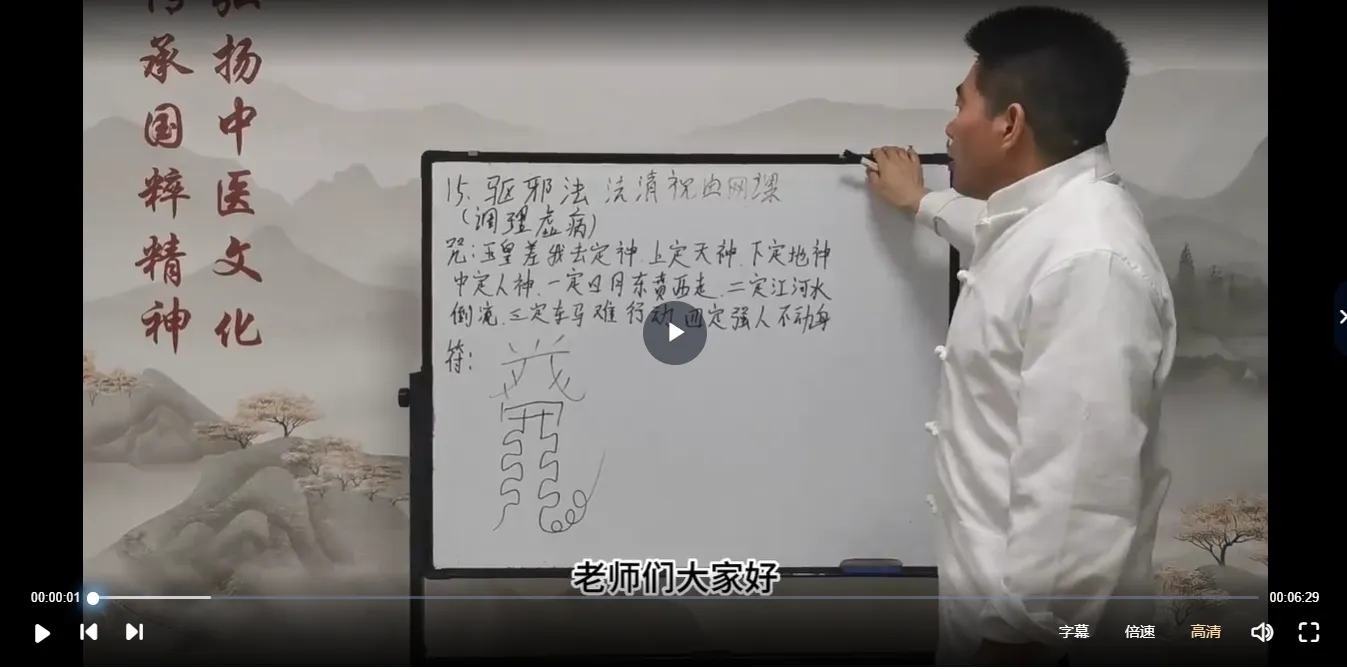 弘扬中医文化
传承国粹精神
15.驱邪法 清祝由网课
(调理虚病)
咒:玉皇差我去定神.上定天神.下定地神
中定人神.一定日月东贲西走.二定江河水
倒流.三定车马难行动.四定强人不动身
符:
老师们大家好
00:00:01
00:06:29
字幕 倍速 高清